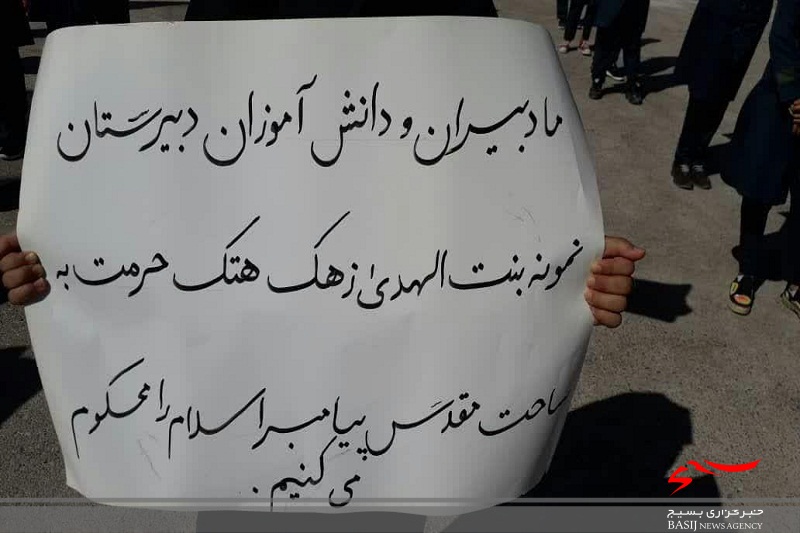 ما دبیران و دانش آموزان دبیرستان
نمونه بنت الهدیٰ زهک هتک حرمت به
ساحت مقدس پیامبر اسلام را محکوم
می کنیم.
بسیج
خبرگزاری بسیج
BASIJ NEWS AGENCY